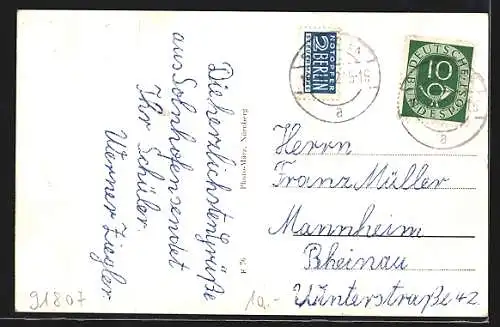 Die herzlichsten Grüße
aus Solnhofen sendet
Ihr Schüler
Werner Ziegler
Photo-März, Nürnberg
NOTOPFER
2 BERLIN
STEUERMARKE
DEUTSCHE
BUNDESPOST
10
a
a
Herrn
Franz Müller
Mannheim
Rheinau
Winterstraße 42
91807
10.-